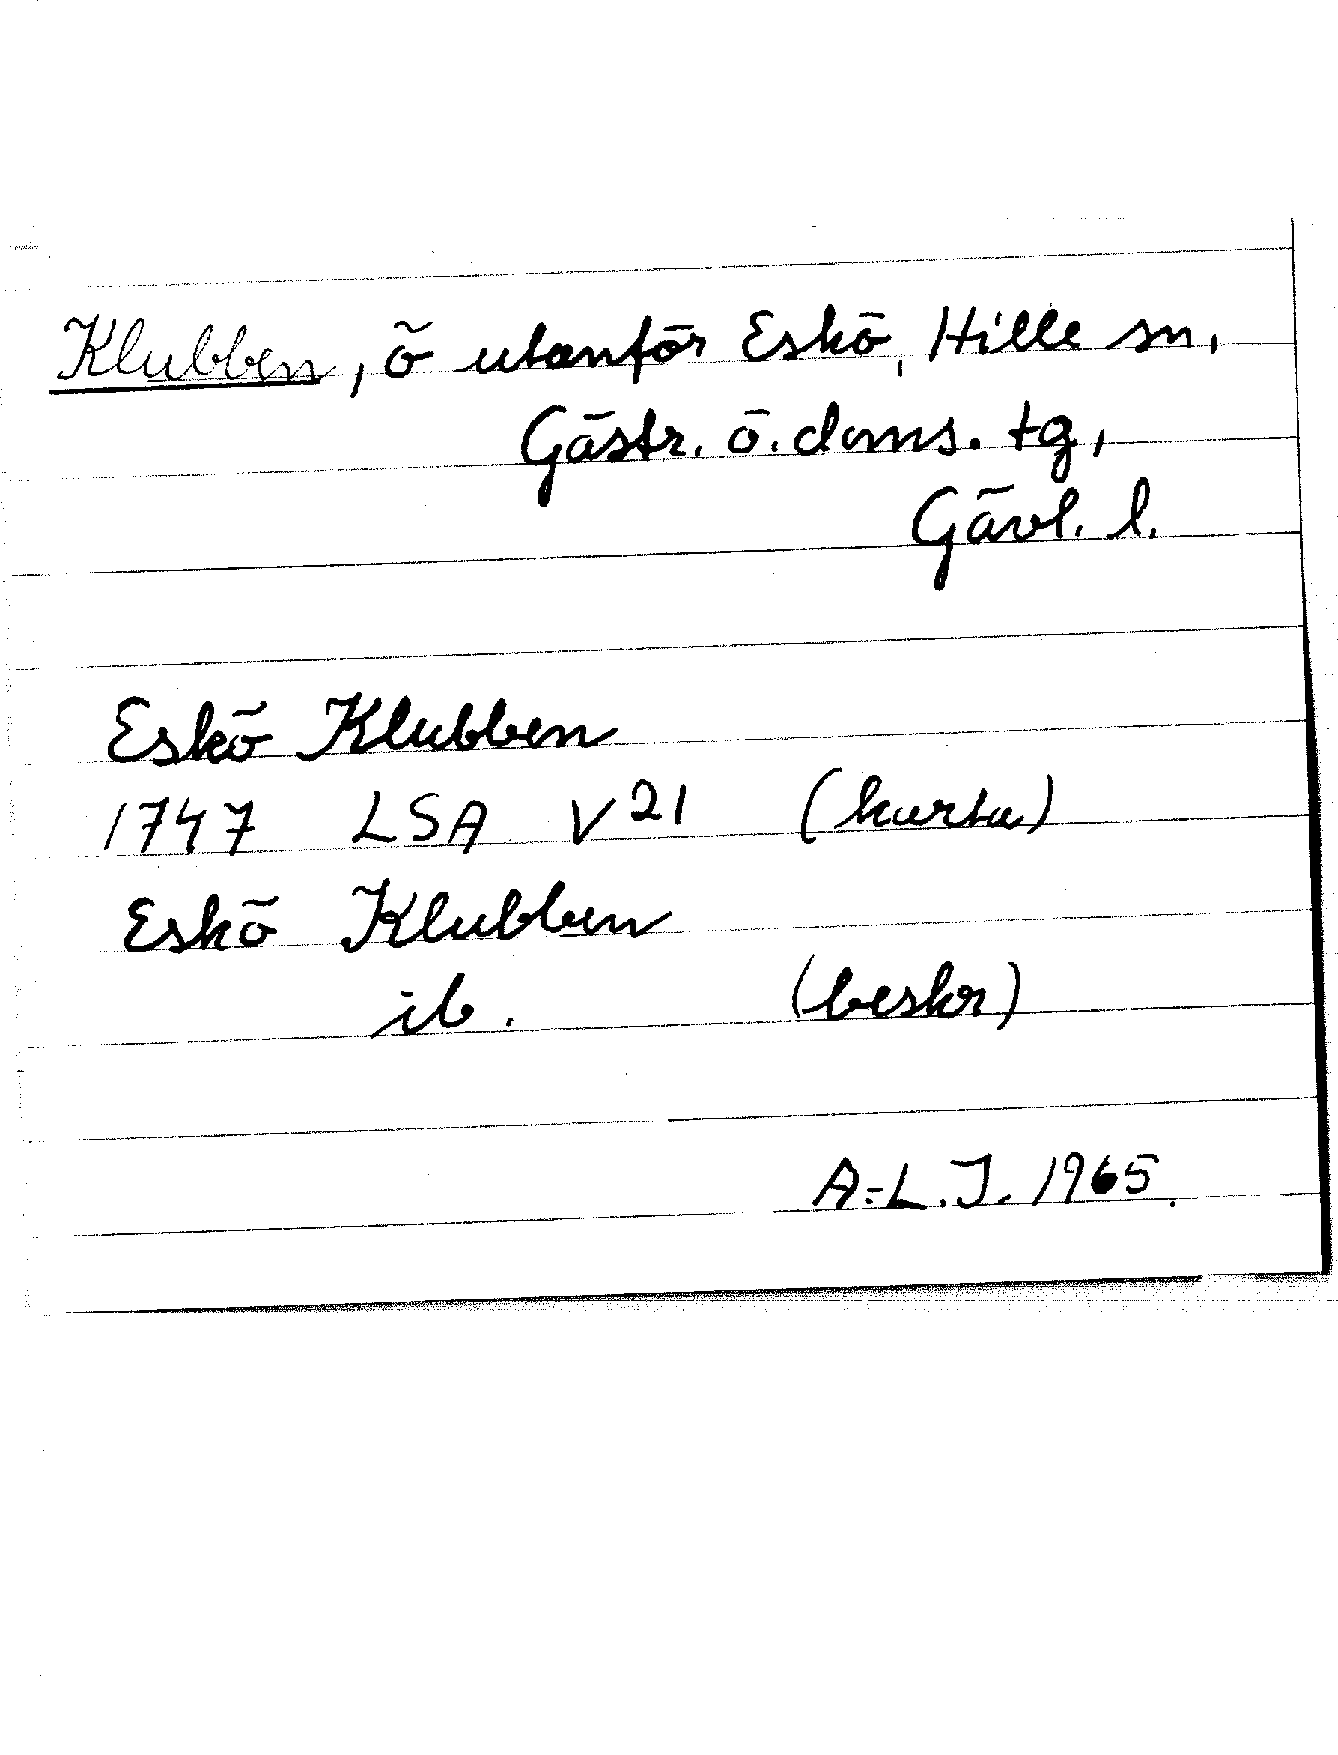 Klubben, ö utanför Eskö, Hille sn,
Gästr. ö. doms. tg,
Gävl. l.
Eskö Klubben
1747 LSA V21 (karta)
Eskö Klubben
ib. (beskr)
A-L.J. 1965.